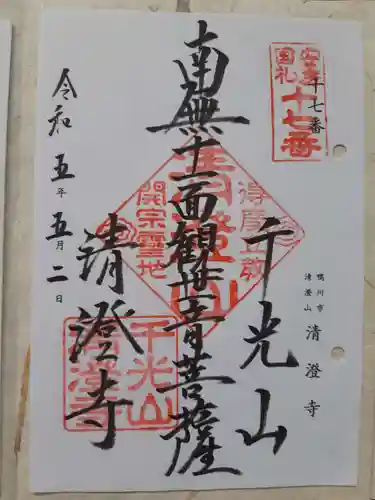 安房
国札
十七番
十七番
鴨川市
清澄山
清澄寺
千光山
南無十一面観世音菩薩
清澄寺
令和五年五月二日
得度立教
開宗霊地
千光山
清澄寺